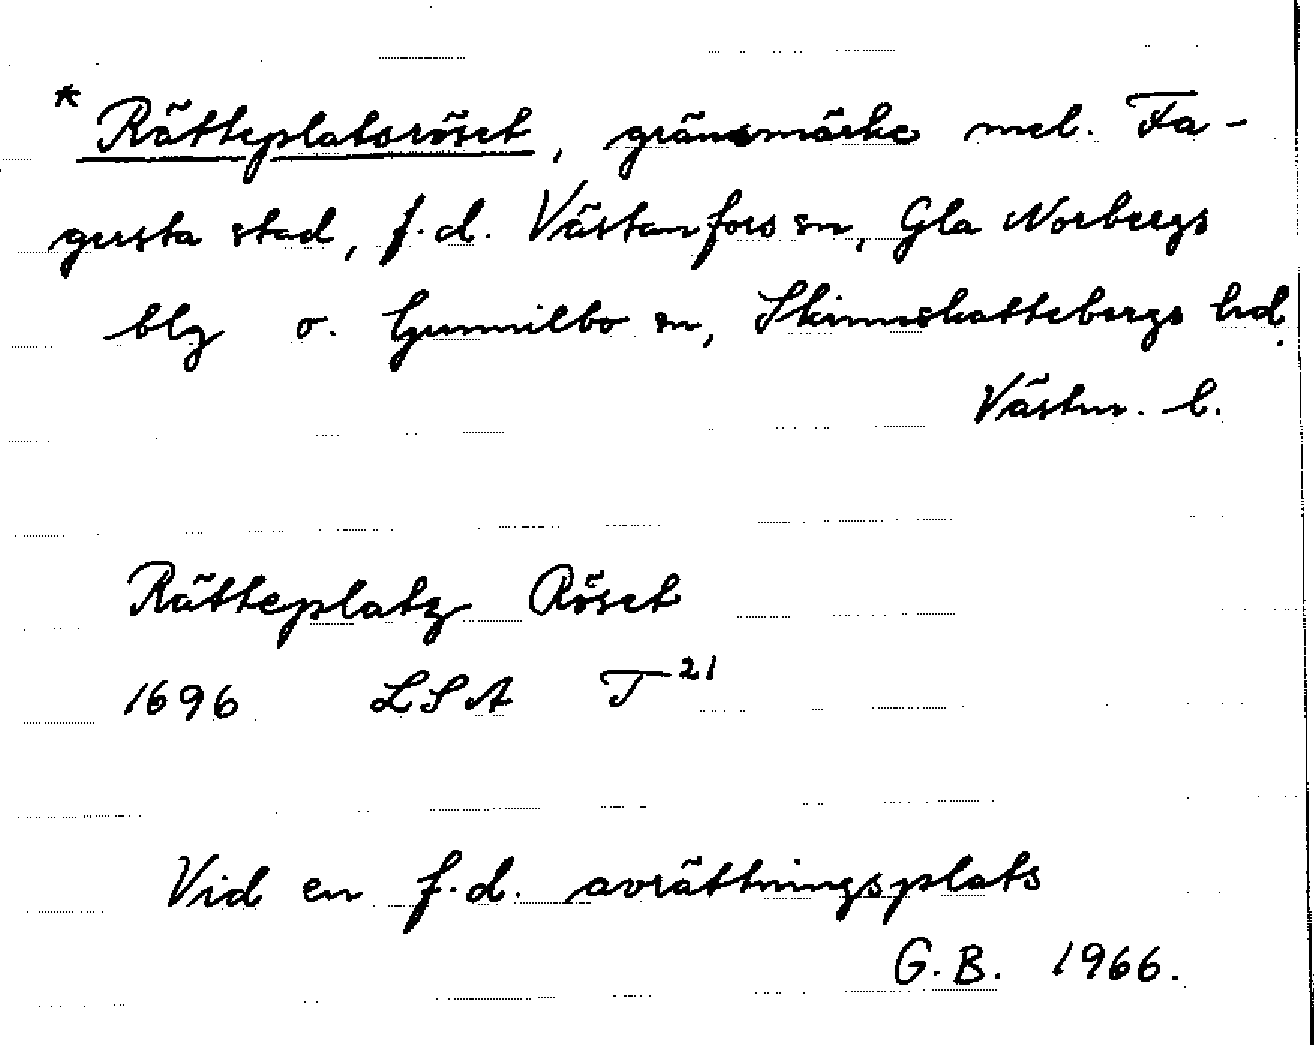 * Rätteplatsröset, gränsmärke mel. Fa-
gersta stad, f.d. Västanfors sn, Gla Norbergs
blg o. Gunnilbo sn, Skinnskattebergs hd.
Västm. l.
Rätteplatz Röset
1696 LSA T21
Vid en f.d. avrättningsplats
G.B. 1966.